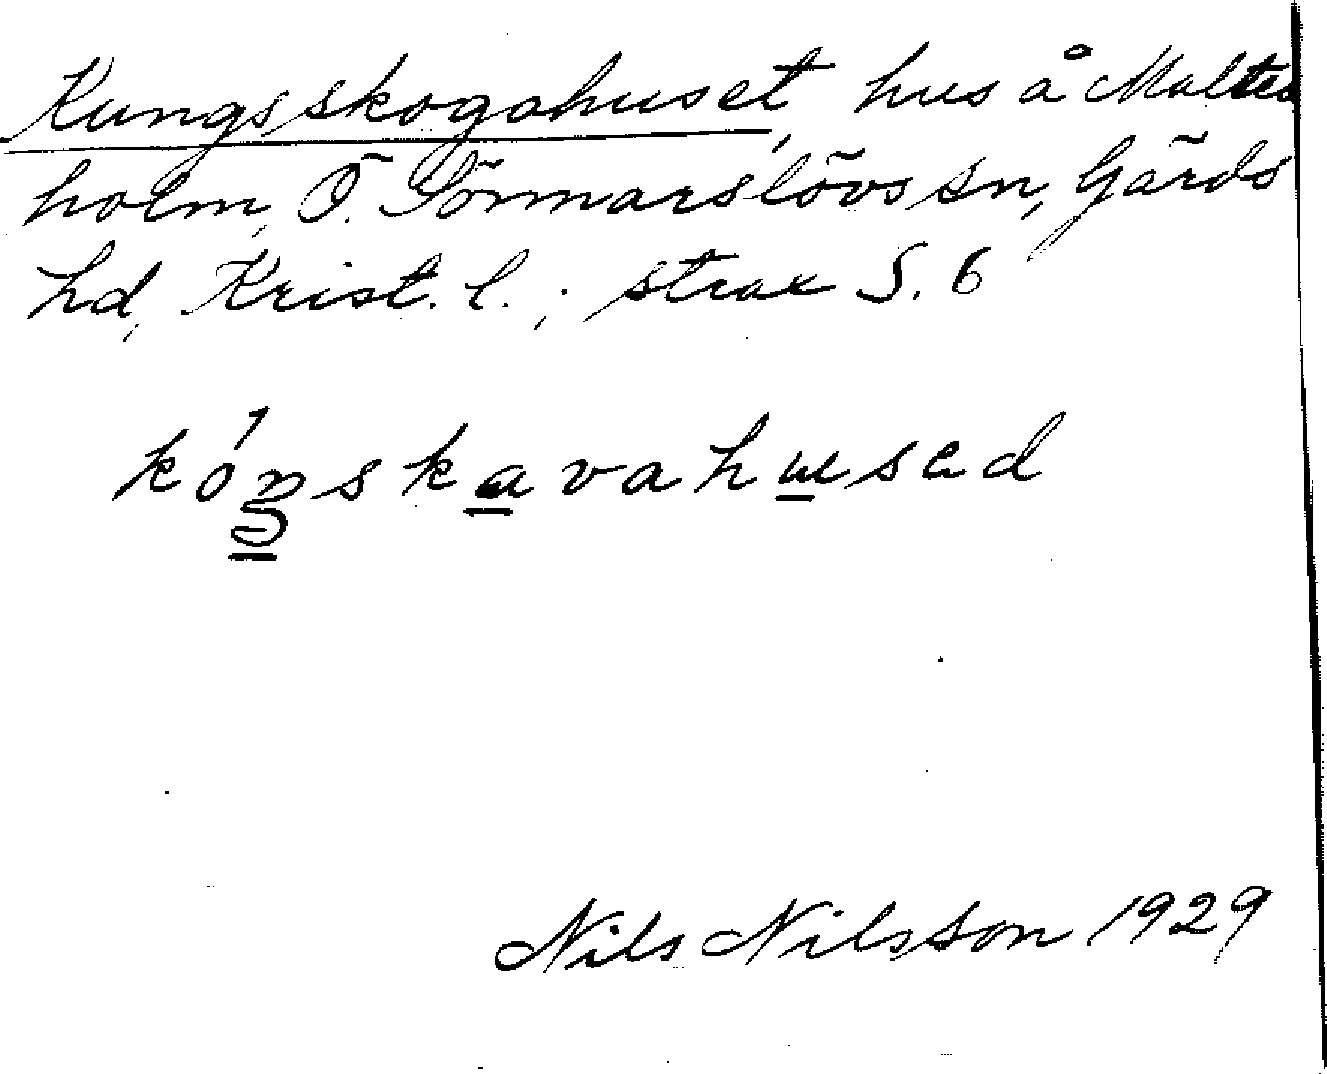 Kungsskogahuset, hus å Maltes
holm, Ö. Sönnarslövs sn, Gärds
hd, Krist. l., strax S. 6
kóŋskavahused
Nils Nilsson 1929